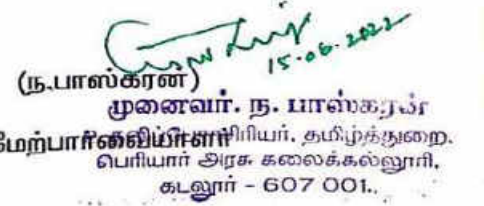 15-06-2022
(ந.பாஸ்கரன்)
முனைவர். ந. பாஸ்கரன்
மேற்பார்வையாளர் தமிழ்த்துறை,
பெரியார் அரசு கலைக்கல்லூரி,
கடலூர் - 607 001.